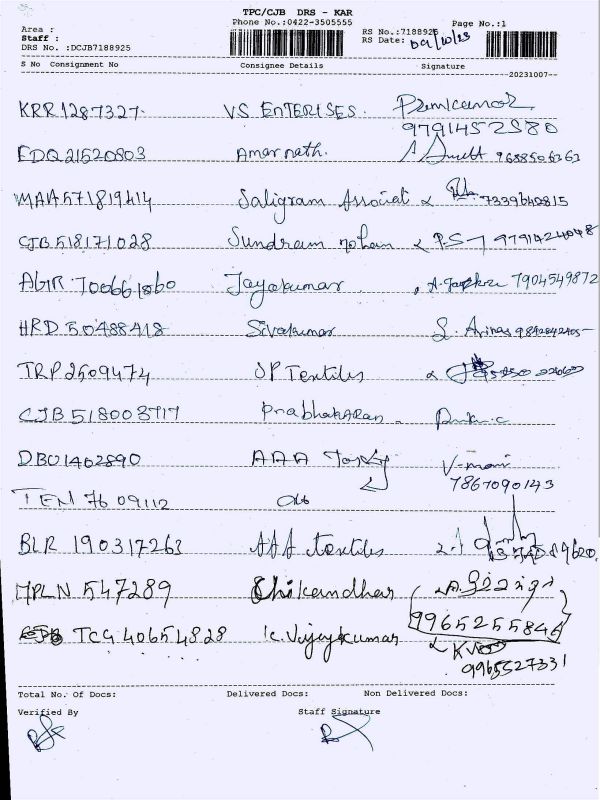 TPC/CJB DRS - KAR
Phone No.:0422-3505555
Area :
Staff :
DRS No. :DCJB7188925
RS No.:7188925
RS Date: 09/10/23
Page No.:1
S No Consignment No Consignee Details Signature
20231007
KRR1287327 VS ENTERISES. Premkumar
9791452580
EDQ21520803 Amarnath. 9688506363
MAA571819414 Saligram Associat 7339642815
CJB518171028 Sundram mohan P.S 9791424048
AGIR 700661860 Jayakumar 7904549872
HRD 50488418 Sivakumar S.
TRP2509474 SP Textiles
CJB518003717 Prabhakaran
DBO1402890 AAA V-mani
7867090143
TEN 76 09112
BLR 190317263 AAA textiles
MPLN 547289
9965255846
TCG 40654828 K. Vijaykumar
9965527331
Total No. Of Docs: Delivered Docs: Non Delivered Docs:
Verified By Staff Signature